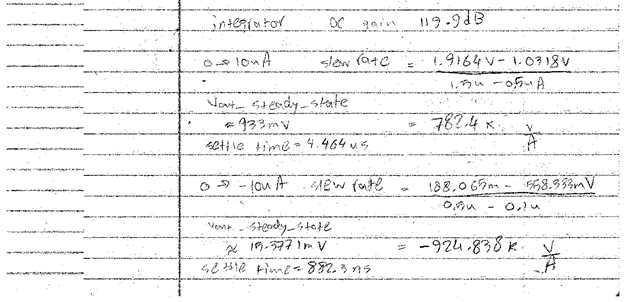 integrator DC gain 119.9dB
0 → 10uA slew rate = 1.9164V - 1.0318V
1.5u - 0.5uA
Vout_steady_state
≈ 933mV = 782.4 K V/A
settle time = 4.464us
0 → -10uA slew rate = 188.065m - 558.333mV
0.5u - 0.1u
Vout_steady_state
≈ 15.3771mV = -924.838K V/A
settle time = 882.3ns